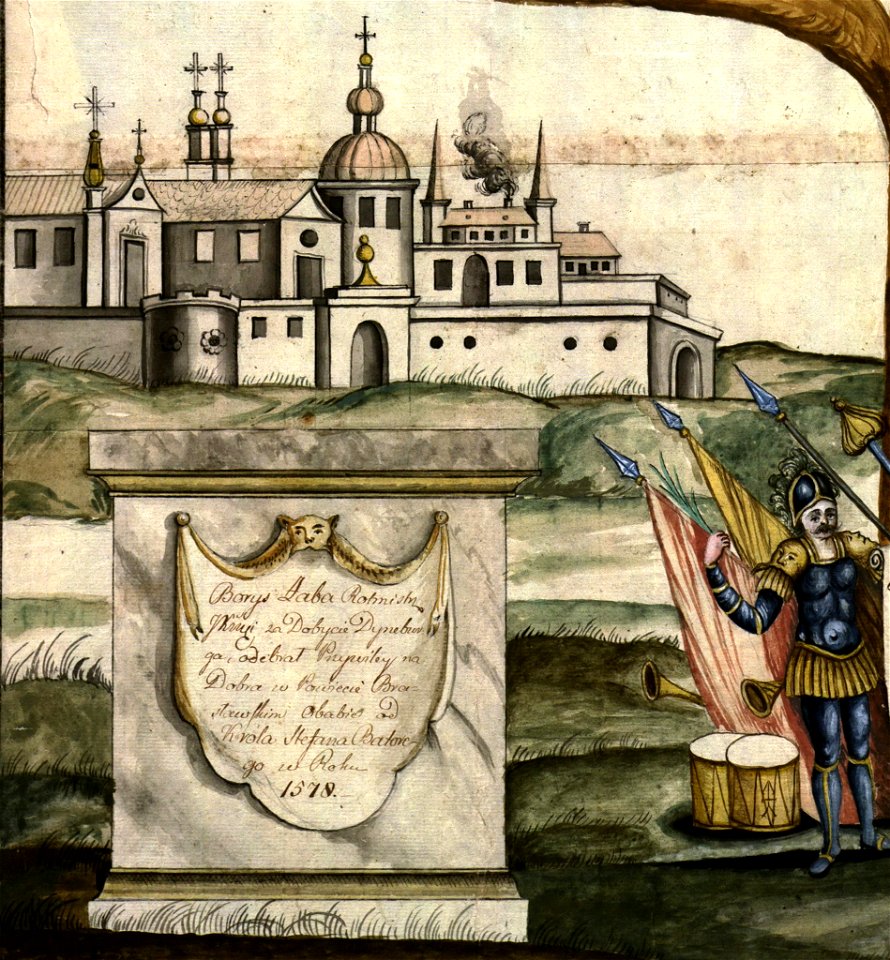 Borys Łaba Rotmistrz
JKMci za Dobycie Dynebur
ga, odebrał Przywiley na
Dobra w Powiecie Bra-
sławskim Obabie od
Króla Stefana Batore-
go w Roku
1578.